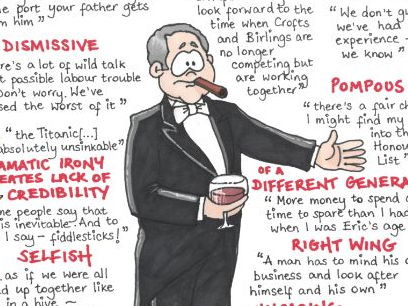 port your father gets
him”
DISMISSIVE
ere's a lot of wild talk
t possible labour trouble
Don't worry. We've
sed the worst of it”
“the Titanic[...]
absolutely unsinkable”
AMATIC IRONY
EATES LACK OF
CREDIBILITY
me people say that
is inevitable. And to
I say – fiddlesticks!”
SELFISH
as if we were all
d up together like
in a hive ~
look forward to the
time when Crofts
and Birlings are
no longer
competing but
are working
together”
“We don't gu
we've had
experience –
we know”
POMPOUS
“there's a fair ch
I might find my
into th
Honou
List”
OF A
DIFFERENT GENERA
“More money to spend a
time to spare than I had
when I was Eric's age
RIGHT WING
“A man has to mind his o
business and look after
himself and his own”